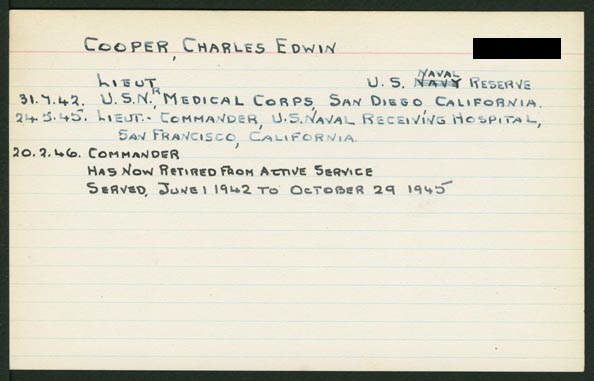 COOPER, CHARLES EDWIN
LIEUT U.S. NAVAL NAVY RESERVE
31.7.42. U.S.N.R, MEDICAL CORPS, SAN DIEGO, CALIFORNIA.
24.5.45. LIEUT.- COMMANDER, U.S. NAVAL RECEIVING HOSPITAL,
SAN FRANCISCO, CALIFORNIA.
20.2.46. COMMANDER
HAS NOW RETIRED FROM ACTIVE SERVICE
SERVED, JUNE 1 1942 TO OCTOBER 29 1945